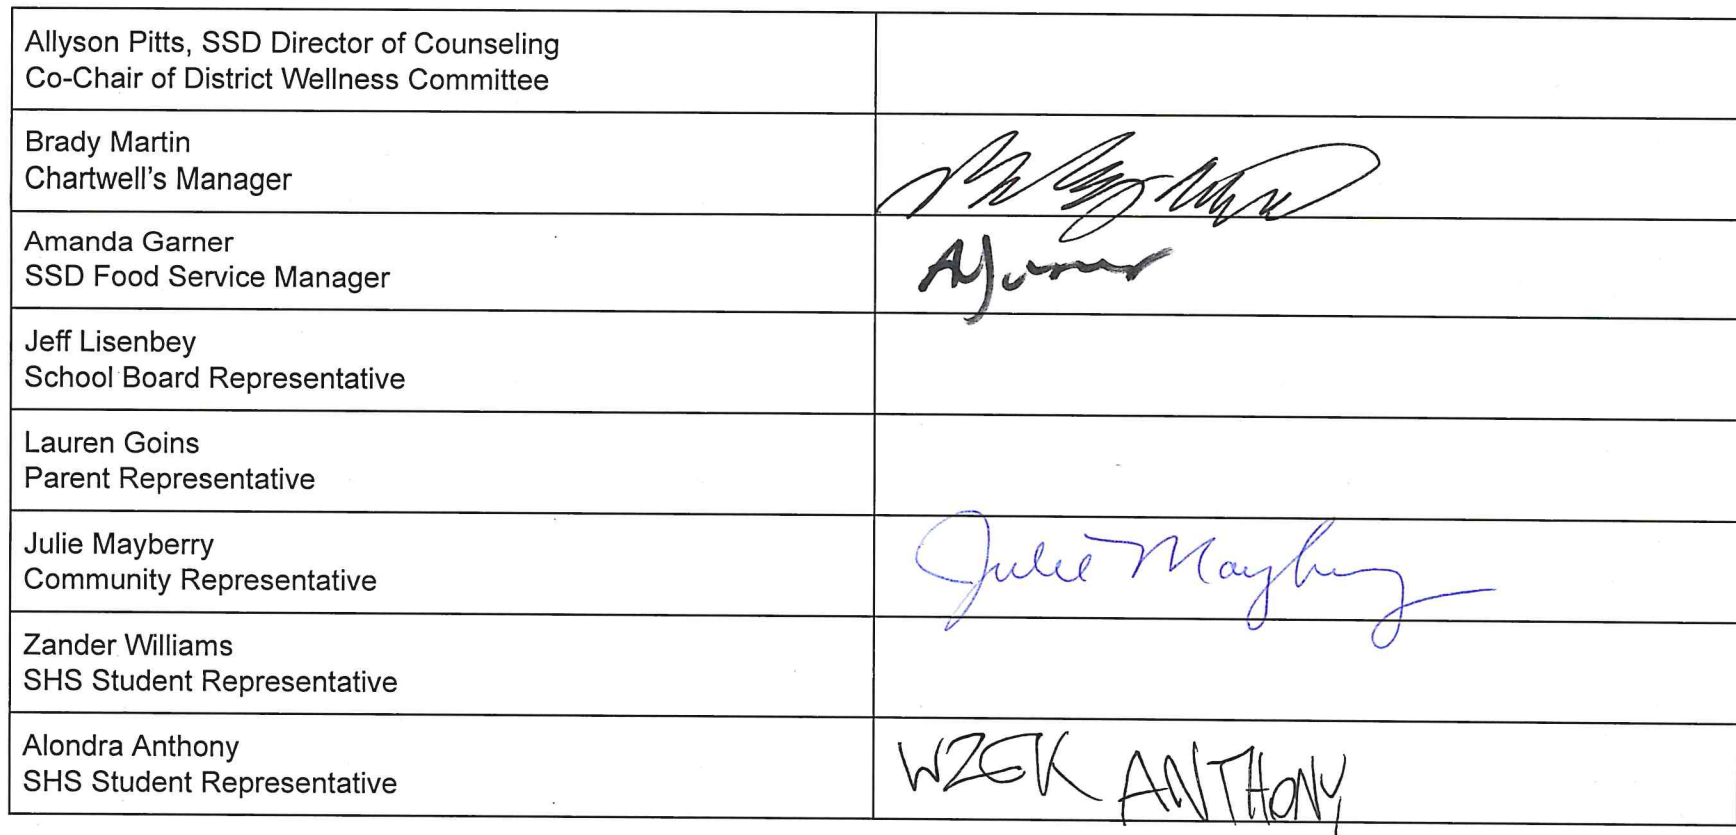 Allyson Pitts, SSD Director of Counseling
Co-Chair of District Wellness Committee
Brady Martin
Chartwell's Manager
Amanda Garner
SSD Food Service Manager
Jeff Lisenbey
School Board Representative
Lauren Goins
Parent Representative
Julie Mayberry
Community Representative
Julie Mayberry
Zander Williams
SHS Student Representative
Alondra Anthony
SHS Student Representative
WZEK ANTHONY